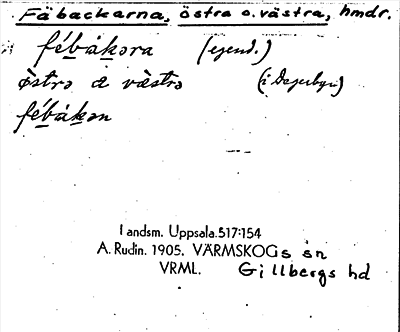 Fäbackarna, östra o. västra, hmdr.
fébákəra (egend.)
östrə a västrə (i Dagerbyn)
fébákən
Landsm. Uppsala.517:154
A. Rudin. 1905. VÄRMSKOGs sn
VRML. Gillbergs hd